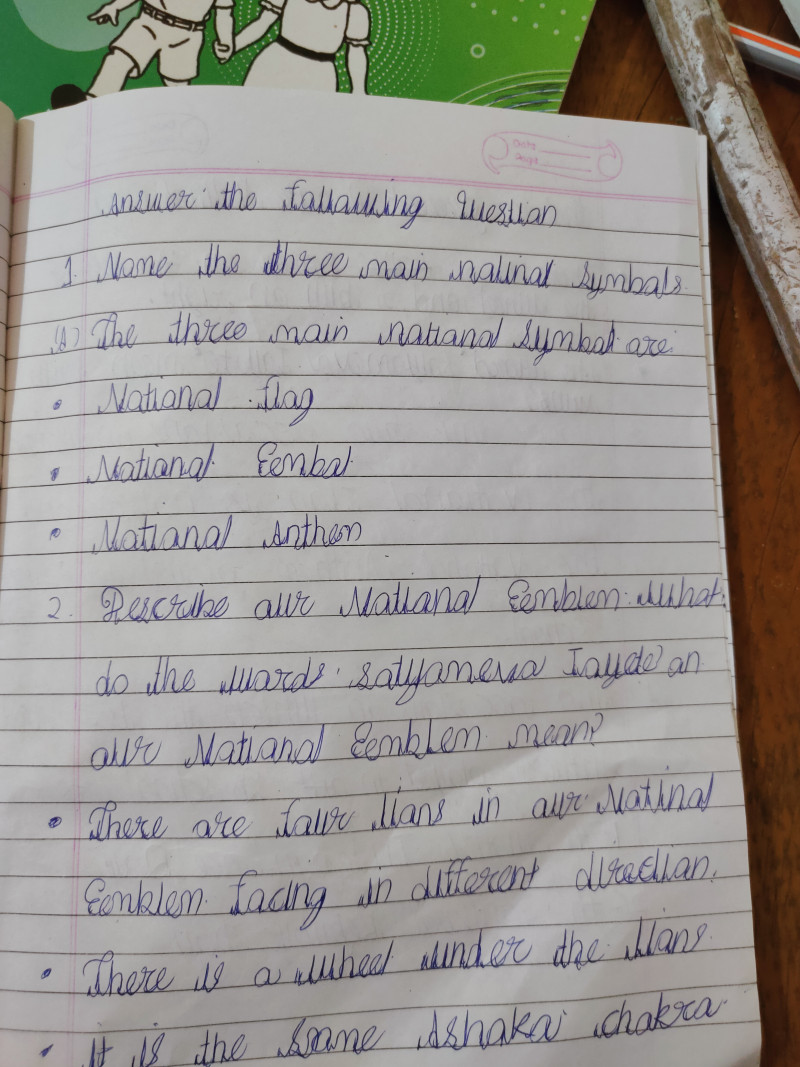 Date
Page
Answer the following Question
1. Name the three main natinal symbols.
(A) The three main national symbol are.
• National flag
• National Eembal
• National Anthem
2. Describe our National Eemblem. What
do the words. satyameva Jayete on
our National Eemblem mean?
• There are four lions in our Natinal
Eemblem facing in different direction.
• There is a wheel under the lions.
• It is the same Ashoka chakra.